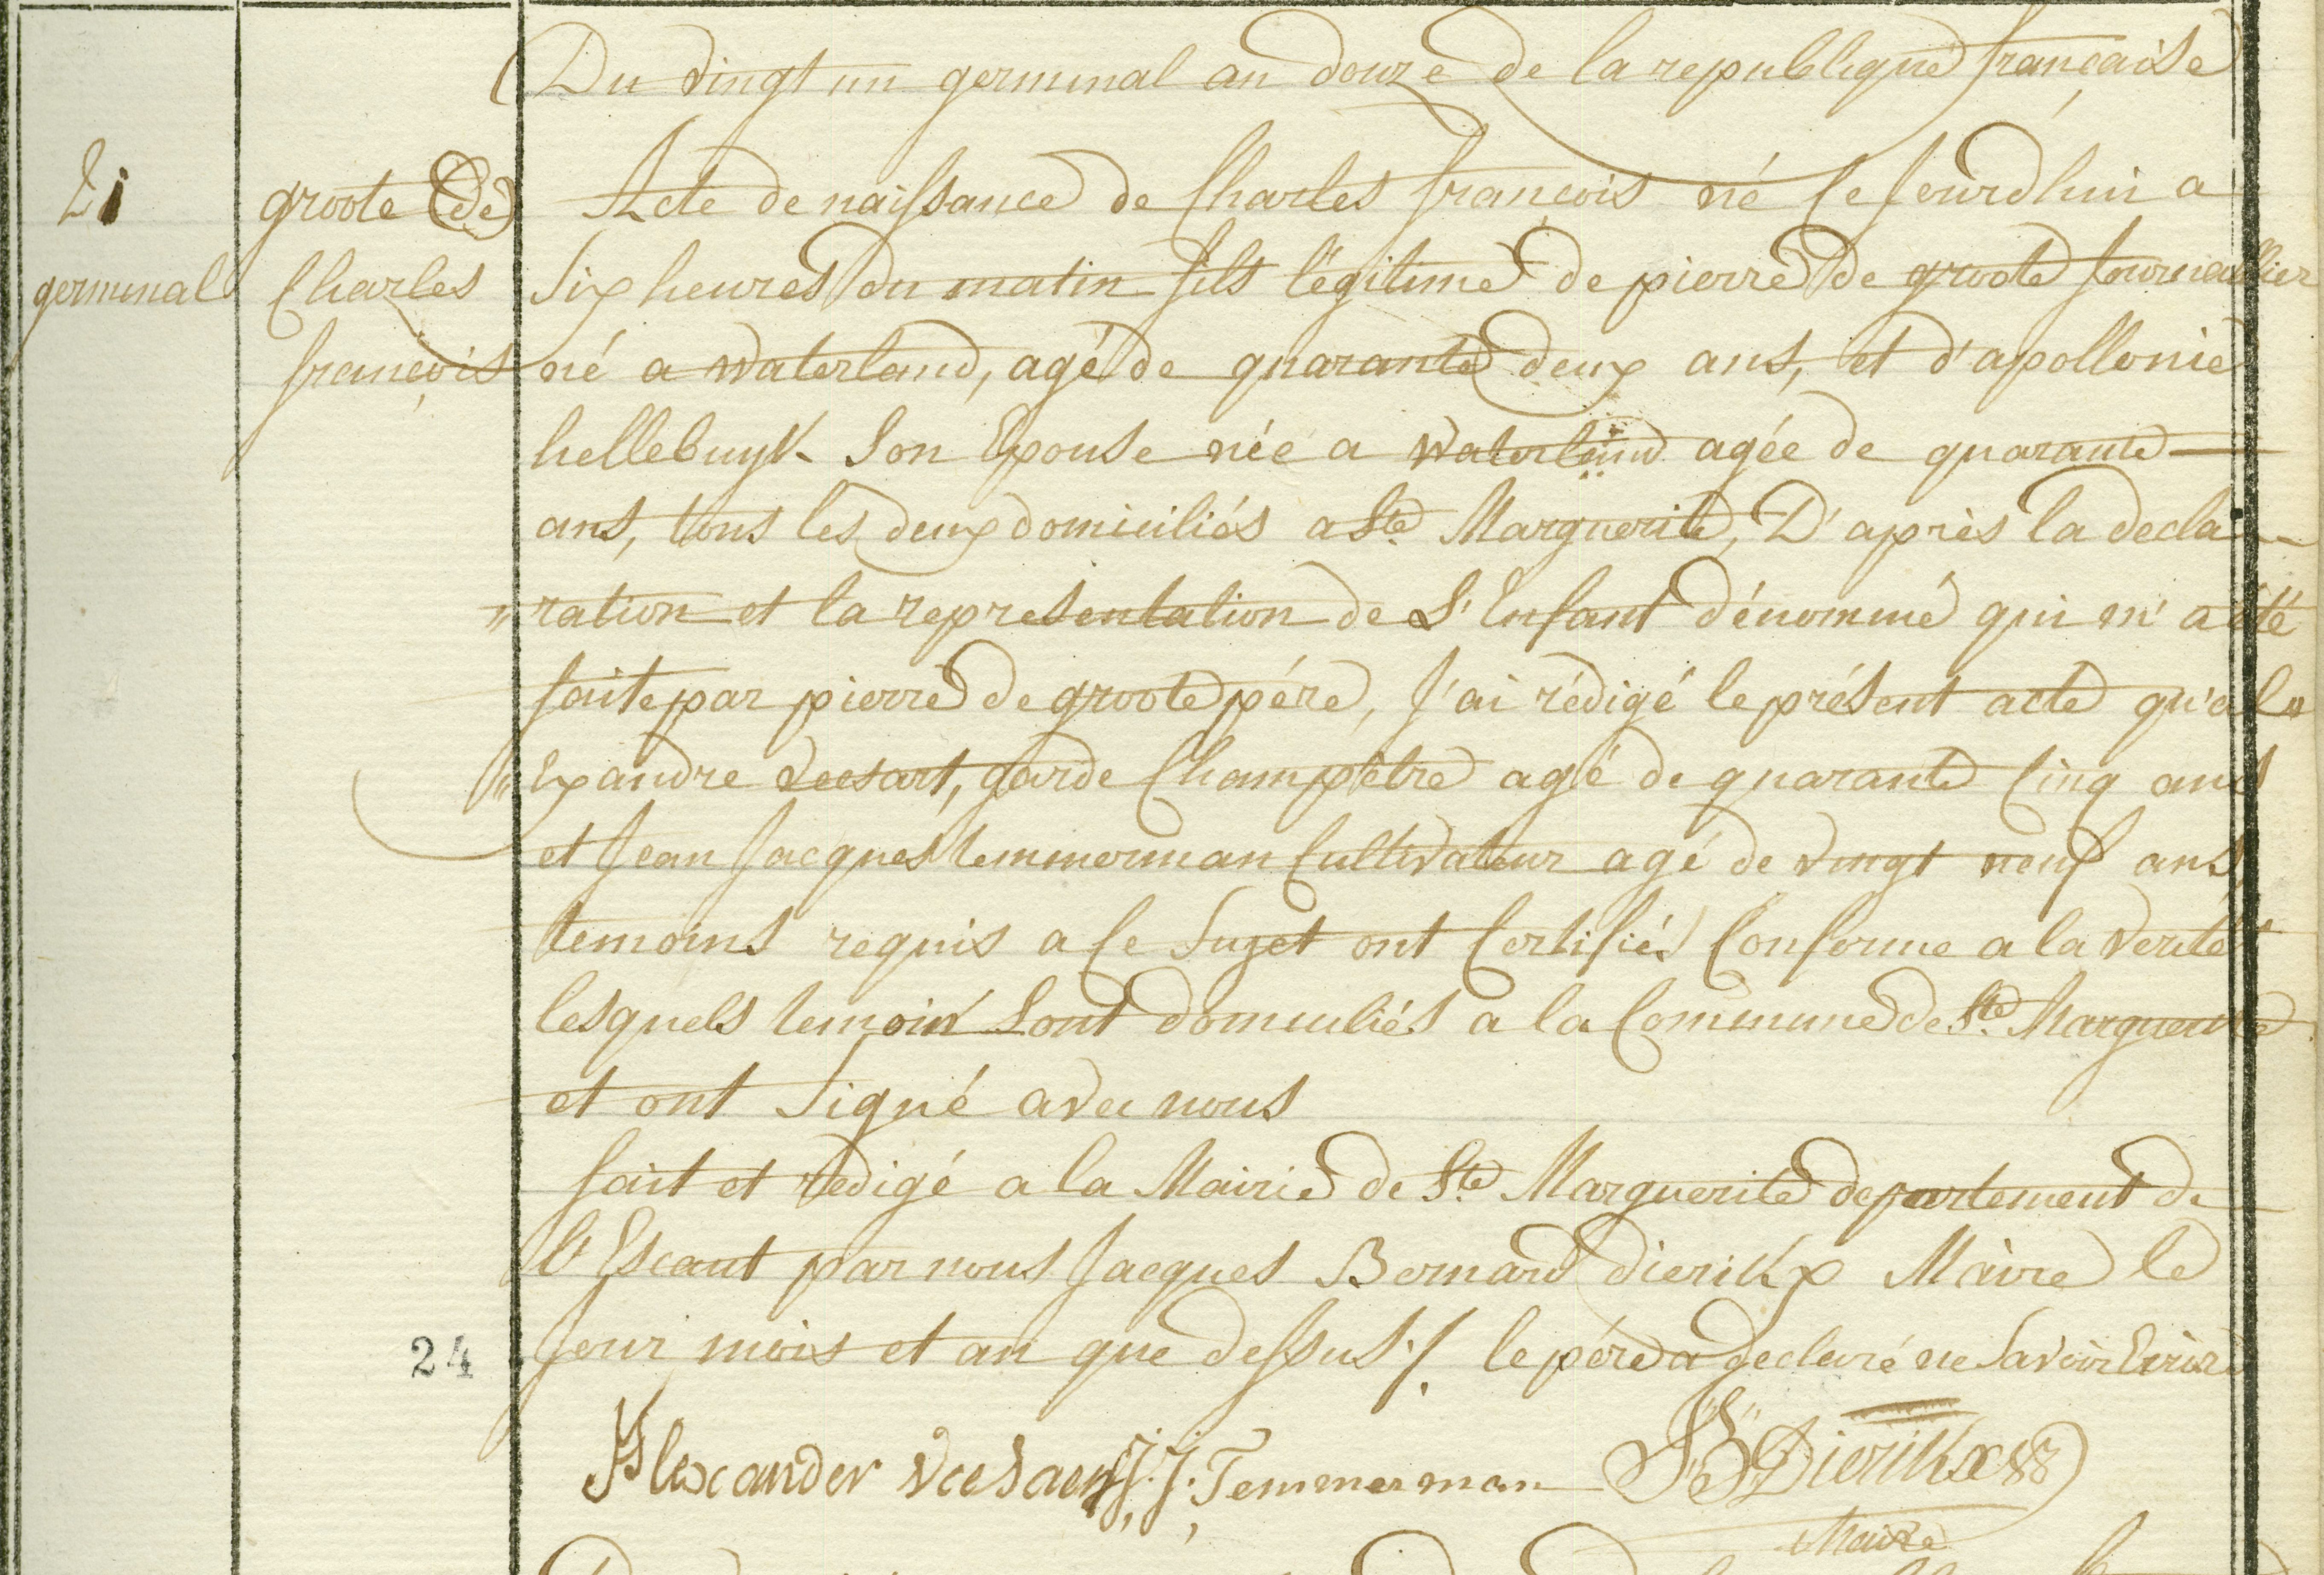 Du vingt un germinal an douze de la republique française
21
germinal
groote (de)
Charles
françois
Acte de naissance de Charles françois né ce jourd'hui a
six heures du matin fils légitime de pierre de groote journaillier
né a waterland, agé de quarante deux ans, et d'apollonie
hellebuyk son Epouse née a waterland agée de quarante
ans, tous les deux domiciliés a Ste Marguerite, D'après la decla-
"ration et la representation de L'Enfant dénommé qui m'a été
faite par pierre de groote pére, j'ai rédigé le présent acte qu'al"
"Exandre Veesart, garde Champètre agé de quarante cinq ans
et jean jacques temmerman Cultivateur agé de vingt neuf ans,
temoins requis a ce sujet ont Certifiés Conforme a la verité
lesquels temoin sont domiciliés a la Commune de Ste Marguerite
et ont signé avec nous
fait et redigé a la Mairie de Ste Marguerite departement de
l'Escaut par nous jacques Bernard dierikx Maire le
jour mois et an que dessus ./. le père a declaré ne savoir Ecrire
24
Alexander J:J: Temmerman JB Dierikx
Maire